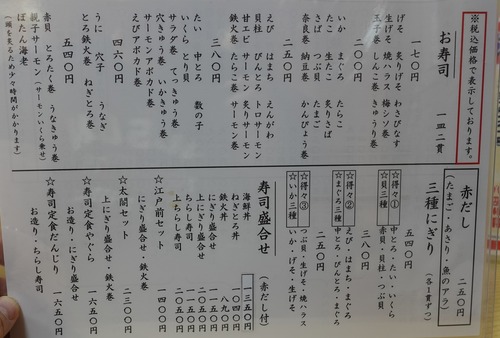 ※税込価格で表示しております。
お寿司 一皿二貫
一七〇円
げそ 炙りげそ わさびなす
生げそ 焼ハラス 梅シソ巻
玉子巻 しんこ巻 きゅうり巻
二〇〇円
いか まぐろ たらこ
たこ 生たこ 炙りさば
さば つぶ貝 たまご
奈良巻 納豆巻 かんぴょう巻
二五〇円
えび はまち えんがわ
貝柱 びんとろ トロサーモン
甘エビ サーモン 炙りサーモン
鉄火巻 たらこ巻 サーモン巻
三八〇円
たい 中とろ 数の子
いくら とり貝
サラダ巻 てっきゅう巻
穴きゅう巻 いかきゅう巻
サーモンアボカド巻
えびアボカド巻
四六〇円
うに 穴子 うなぎ
とろ鉄火巻 ねぎとろ巻
五四〇円
赤貝 とろたく巻 うなきゅう巻
親子サーモン(サーモンいくら乗せ)
ぼたん海老
(頭を炙るため少々時間がかかります)
赤だし 二五〇円
(たまご・あさり・魚のアラ)
三種にぎり (各1貫ずつ)
☆得々① 五四〇円
中とろ・たい・いくら
☆貝三種 三八〇円
赤貝・貝柱・つぶ貝
☆得々②
えび・はまち・まぐろ
☆まぐろ三種
中とろ・びんとろ・まぐろ
☆得々③ 二五〇円
つぶ貝・生げそ・焼ハラス
☆いか三種
いか・げそ・生げそ
寿司盛合せ (赤だし付)
海鮮丼 一三五〇円
ねぎとろ丼 一〇四〇円
鉄火丼 八九〇円
にぎり盛合せ 一一〇〇円
上にぎり盛合せ
ちらし寿司
上ちらし寿司
☆江戸前セット
にぎり・鉄火巻 一四〇〇円
☆太閤セット
上にぎり盛合せ・鉄火巻 二三〇〇円
☆寿司定食やぐら
お造り・にぎり盛合せ 一六五〇円
☆寿司定食だんじり
お造り・ちらし寿司 一六五〇円